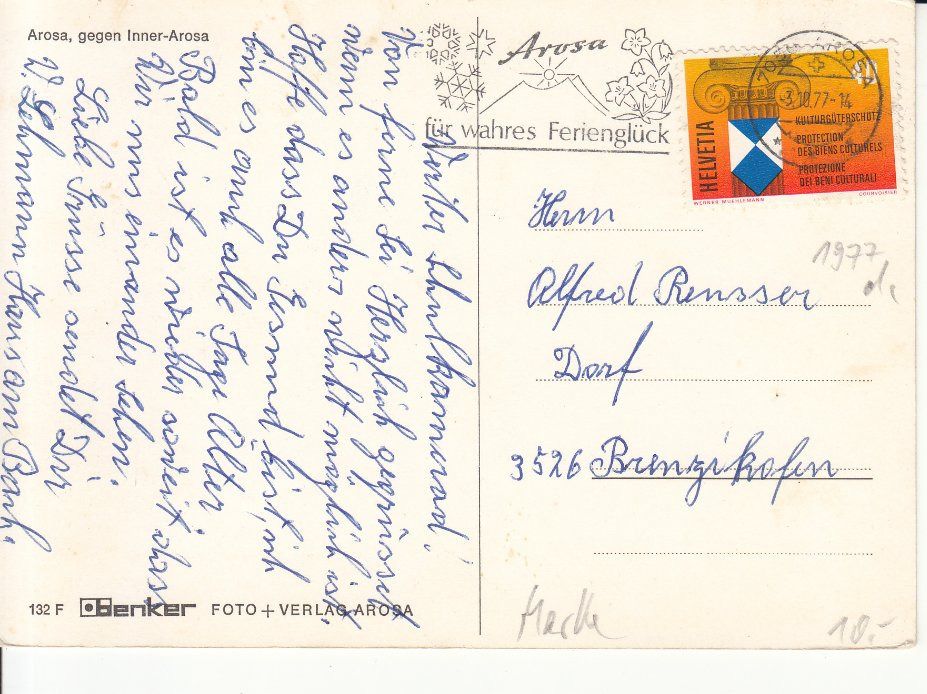 Arosa, gegen Inner-Arosa
Werter Schulkamerad!
Von ferne sei Herzlich gegrüsst
wenn es anders nicht möglich ist.
Hoffe dass Du Gesund bist, ich
bin es auch alle Tage Älter
Bald ist es wieder soweit das
Wir uns einander sehen.
Liebe Grüsse sendet Dir
W. Lehmann Haus am Bach.
132 F benker FOTO + VERLAG AROSA
Arosa
für wahres Ferienglück
7050 AROSA
3.10.77-14
HELVETIA
KULTURGÜTERSCHUTZ
PROTECTION
DES BIENS CULTURELS
PROTEZIONE
DEI BENI CULTURALI
WERNER MUEHLEMANN
COURVOISIER
Herrn
1977
Alfred Rensser
Dorf
3526 Brenzikofen
Marke
10.-